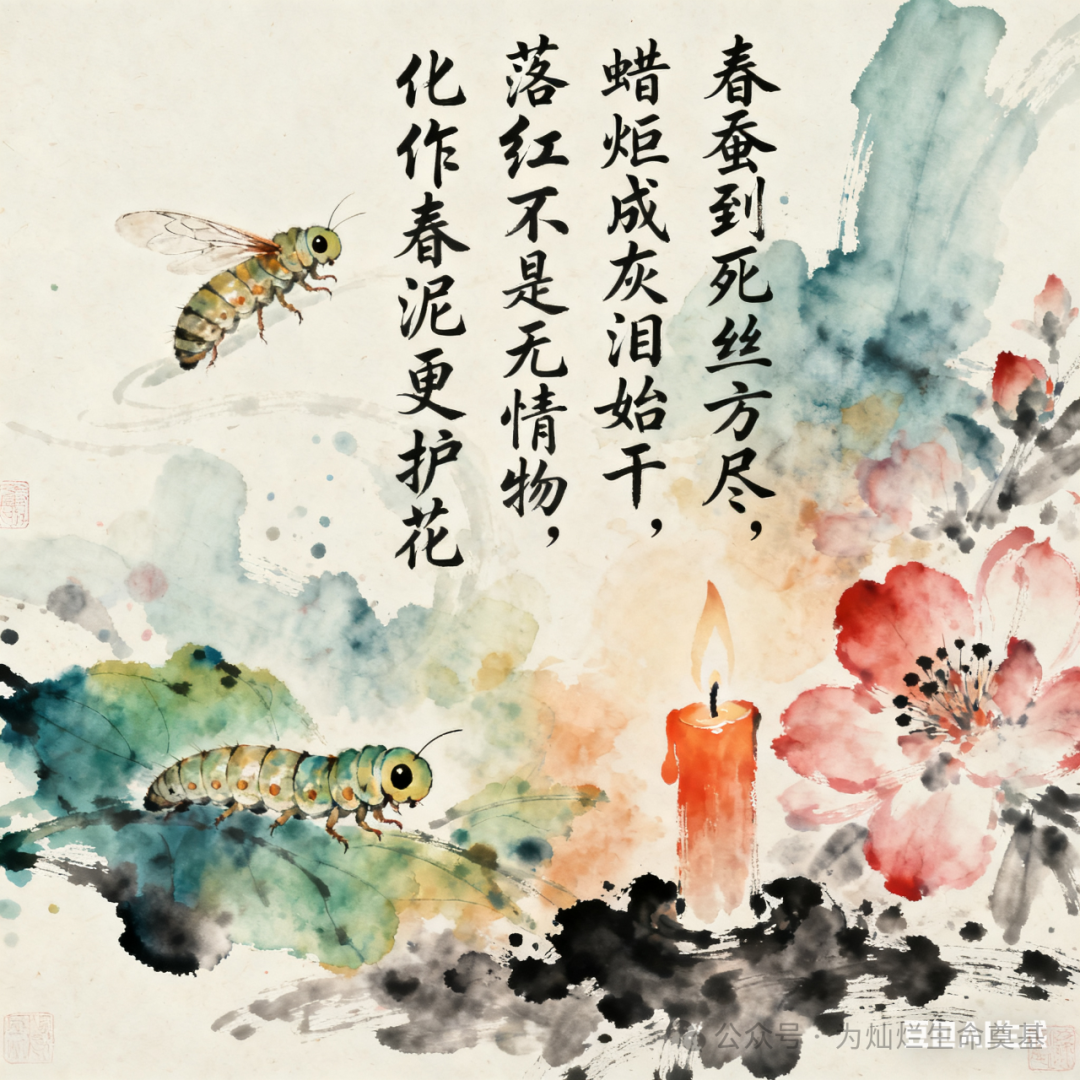 春蚕到死丝方尽，
蜡炬成灰泪始干，
落红不是无情物，
化作春泥更护花
公众号·为灿烂生命奠基